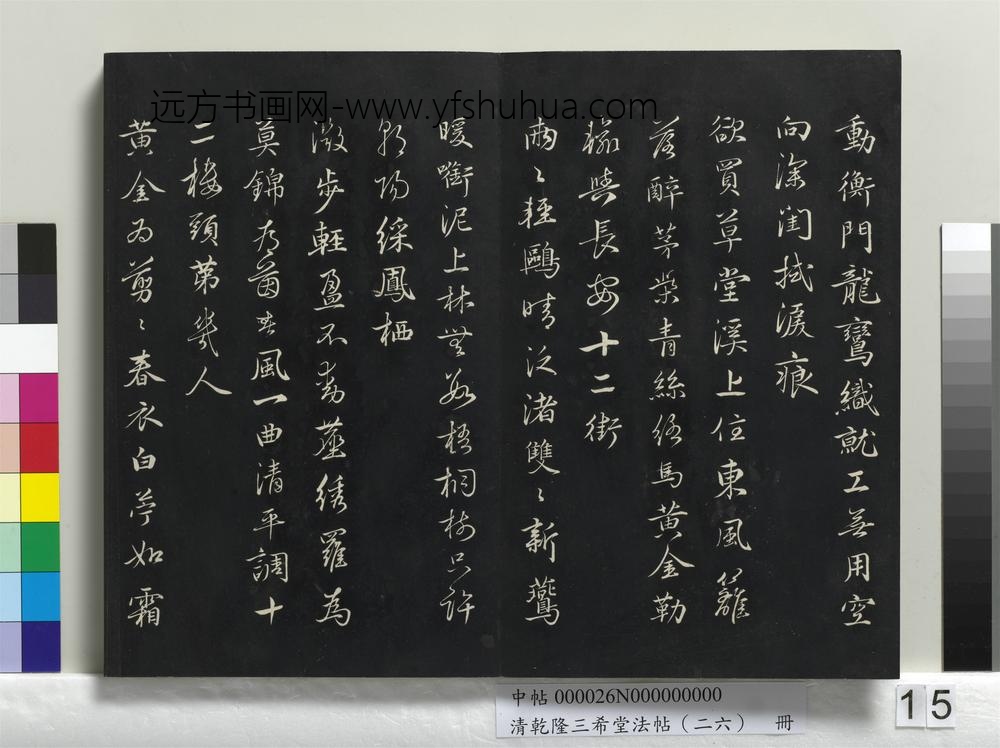 远方书画网-www.yfshuhua.com
動衡門龍鸞織就工無用空
向深閨拭淚痕
欲買草堂溪上住東風籬
落醉茅柴青絲絡馬黃金勒
輸與長安十二街
兩〻輕鷗晴泛渚雙〻新燕
暖銜泥上林無數梧桐樹只許
朝陽綵鳳栖
微步輕盈不動塵綉羅為
幕錦為茵春風一曲清平調十
二樓頭第幾人
黃金為剪〻春衣白苧如霜
中帖 000026N000000000
清乾隆三希堂法帖（二六） 冊
15